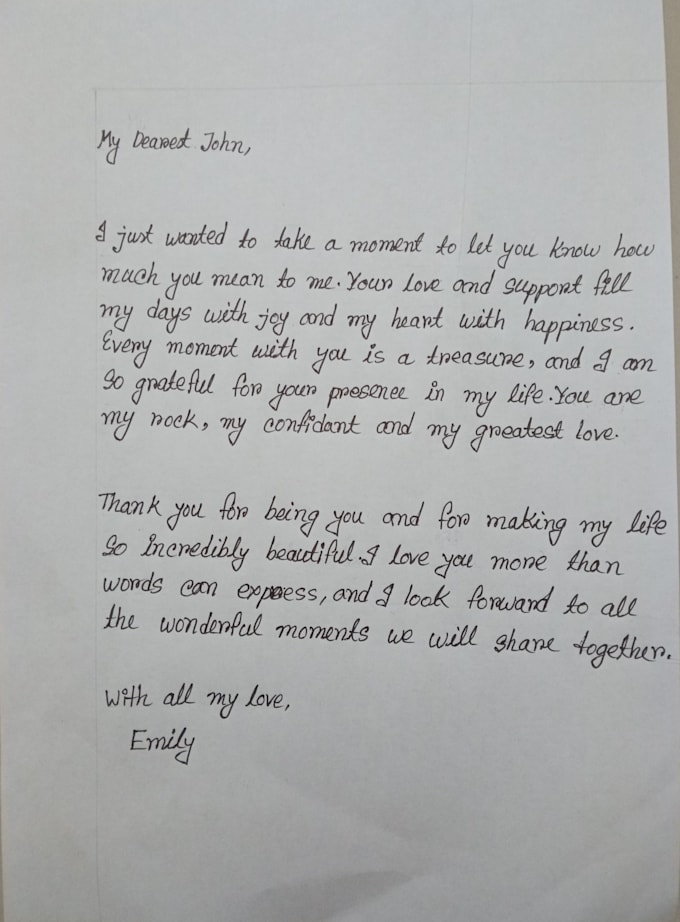 My Dearest John,
I just wanted to take a moment to let you know how
much you mean to me. Your love and support fill
my days with joy and my heart with happiness.
Every moment with you is a treasure, and I am
so grateful for your presence in my life. You are
my rock, my confidant and my greatest love.
Thank you for being you and for making my life
so incredibly beautiful. I love you more than
words can express, and I look forward to all
the wonderful moments we will share together.
With all my love,
Emily